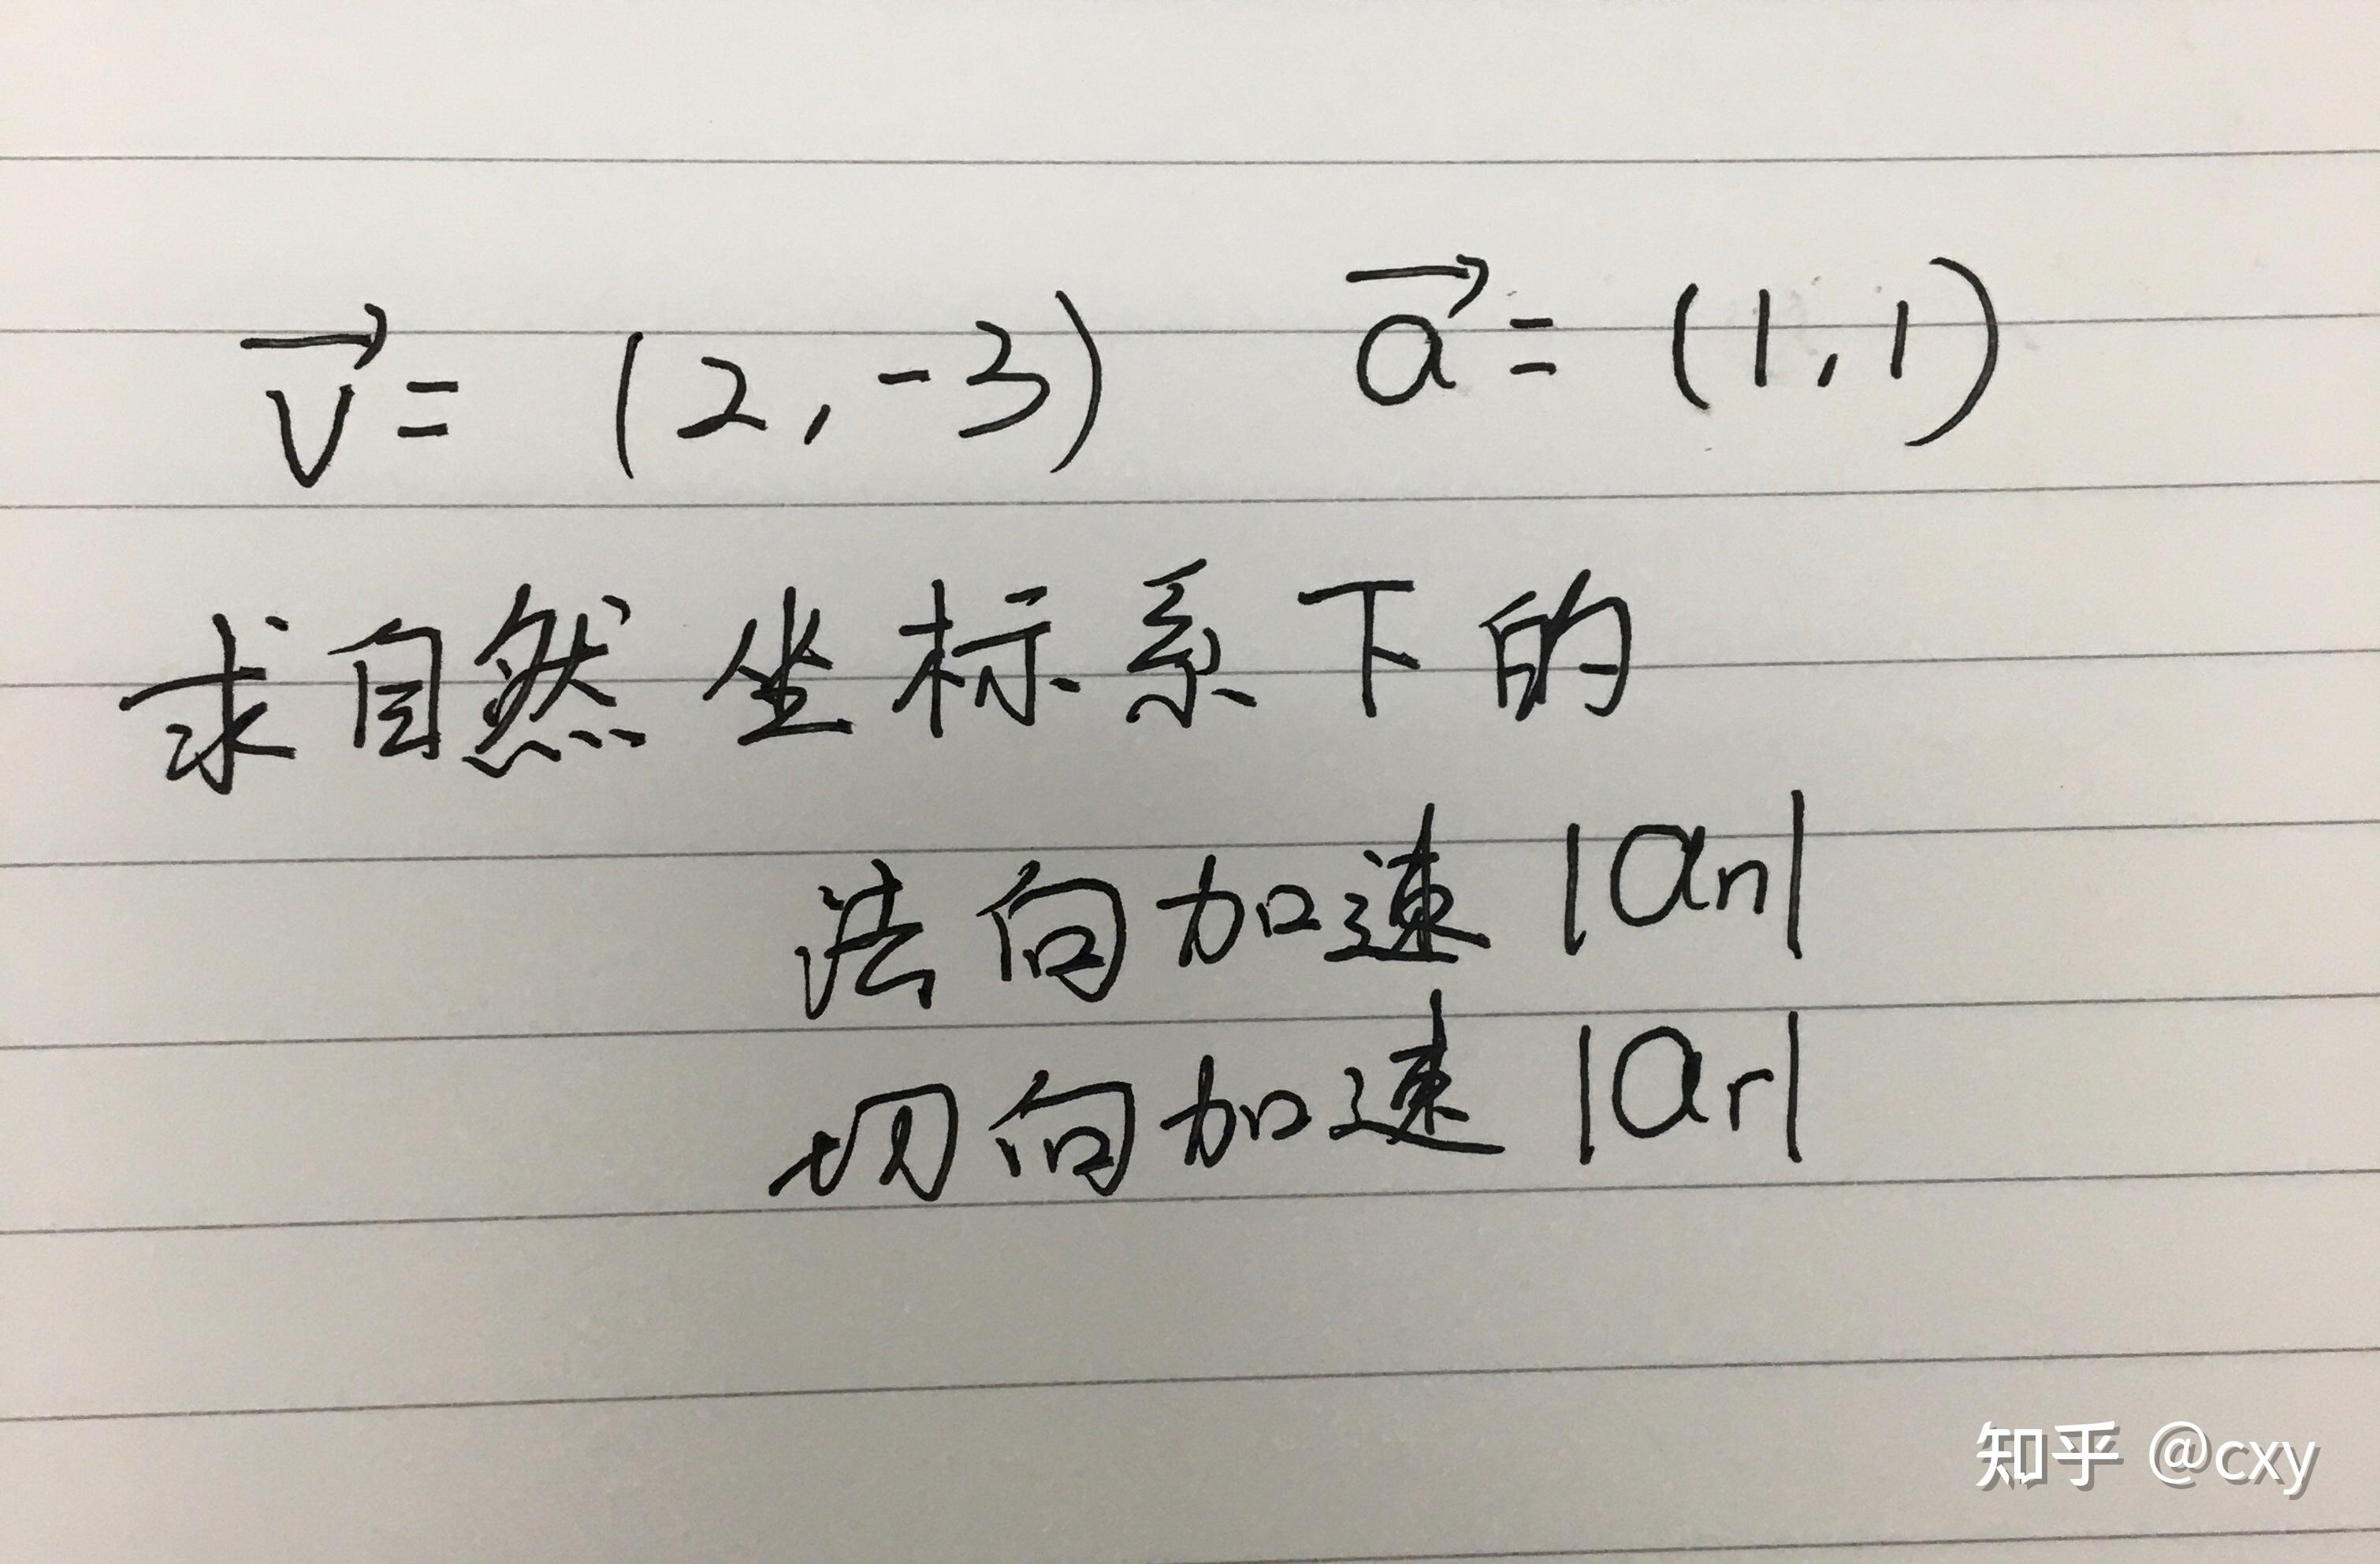 v⃗= (2,-3) a⃗= (1,1)
求自然坐标系下的
法向加速 |an|
切向加速 |ar|
知乎 @cxy